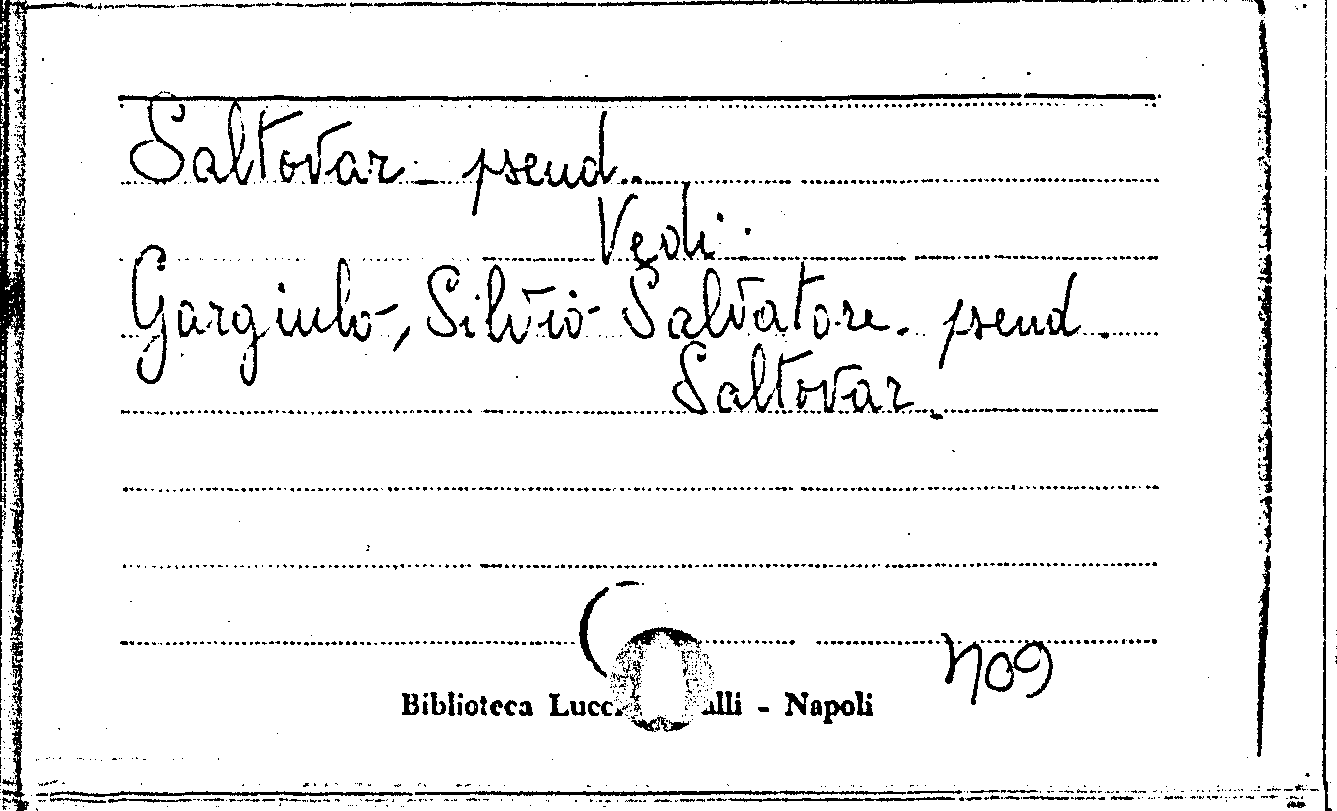 Saltovar - pseud.
Vedi:
Gargiulo, Silvio Salvatore. pseud.
Saltovar.
709
Biblioteca - Napoli